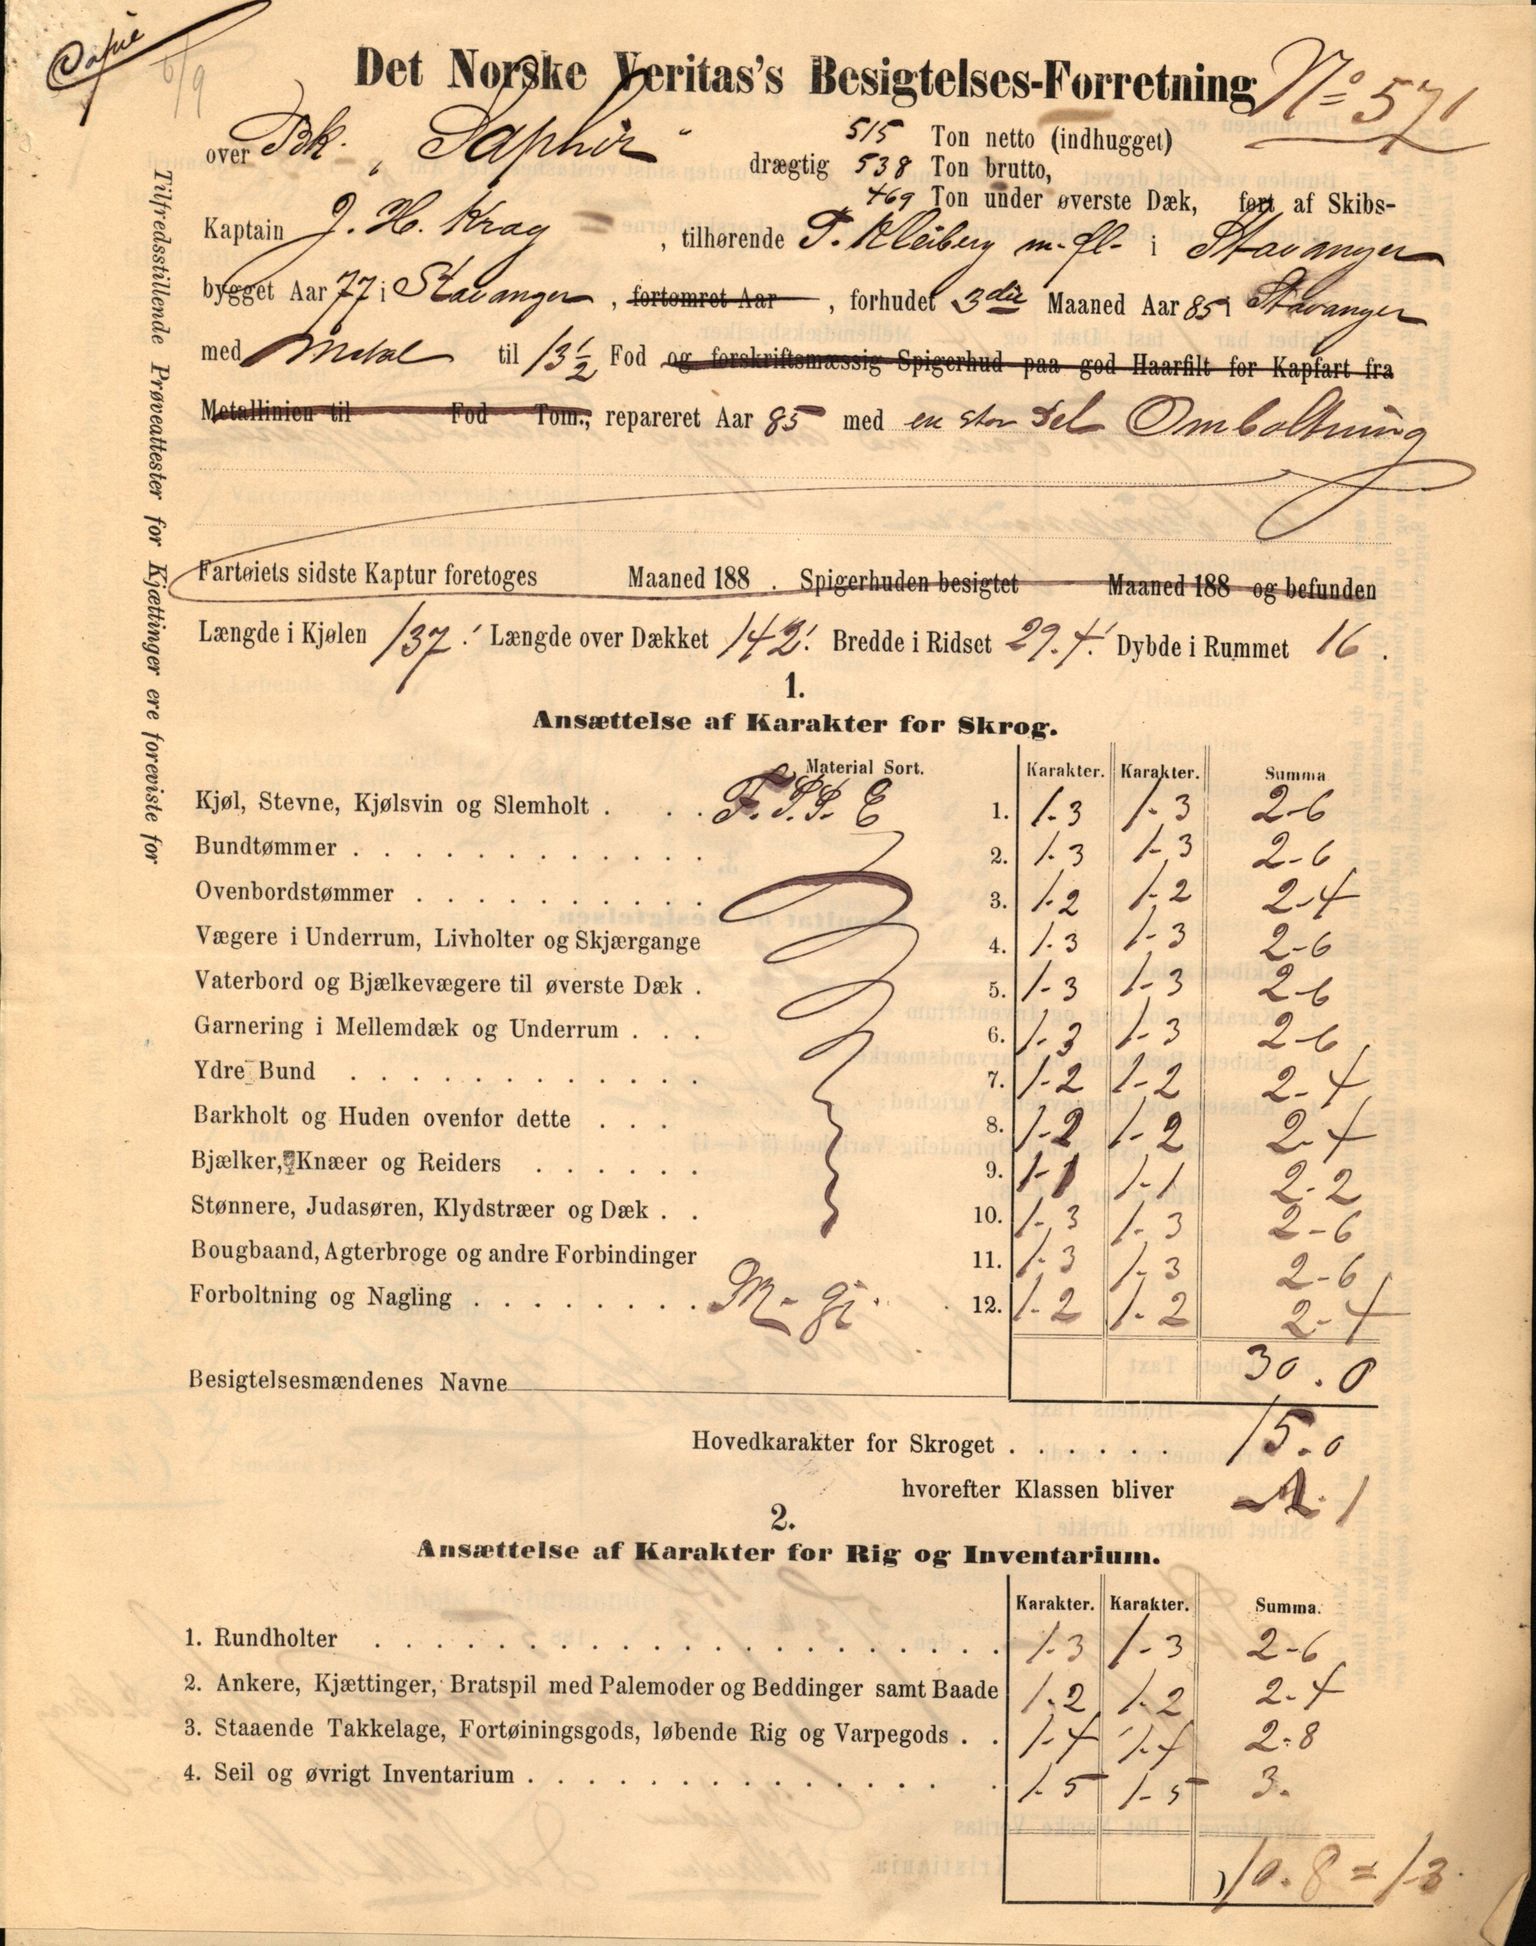 6/9
Det Norske Veritas's Besigtelses-Forretning No 571
over Bk. „Saphir"
515 Ton netto (indhugget)
drægtig 538 Ton brutto,
469 Ton under øverste Dæk, ført af Skibs-
Kaptain J. H. Krag , tilhørende P. Kleiberg m. fl. i Stavanger
bygget Aar 77 i Stavanger , fortømret Aar , forhudet 3die Maaned Aar 85 i Stavanger
med Metal til 13 1/2 Fod og forskriftsmæssig Spigerhud paa god Haarfilt for Kapfart fra
Metallinien til Fod Tom., repareret Aar 85 med en stor Del Omboltning
Fartøiets sidste Kaptur foretoges Maaned 188 . Spigerhuden besigtet Maaned 188 og befunden
Længde i Kjølen 137.' Længde over Dækket 142.' Bredde i Ridset 29.4.' Dybde i Rummet 16 .
Tilfredsstillende Prøveattester for Kjættinger ere foreviste for
1.
Ansættelse af Karakter for Skrog.
Material Sort. Karakter. Karakter. Summa
Kjøl, Stevne, Kjølsvin og Slemholt . . . F. P.P. E 1. 1-3 1-3 2-6
Bundtømmer . . . . . . . . . . . 2. 1-3 1-3 2-6
Ovenbordstømmer . . . . . . . . . . 3. 1-2 1-2 2-4
Vægere i Underrum, Livholter og Skjærgange 4. 1-3 1-3 2-6
Vaterbord og Bjælkevægere til øverste Dæk . 5. 1-3 1-3 2-6
Garnering i Mellemdæk og Underrum . . . 6. 1-3 1-3 2-6
Ydre Bund . . . . . . . . . . . . 7. 1-2 1-2 2-4
Barkholt og Huden ovenfor dette . . . 8. 1-2 1-2 2-4
Bjælker, Knæer og Reiders . . . . . . 9. 1-1 1-1 2-2
Stønnere, Judasøren, Klydstræer og Dæk . . 10. 1-3 1-3 2-6
Bougbaand, Agterbroge og andre Forbindinger 11. 1-3 1-3 2-6
Forboltning og Nagling . . . . . . . . M - gj. 12. 1-2 1-2 2-4
30.0
Besigtelsesmændenes Navne
Hovedkarakter for Skroget . . . . . . 15.0
hvorefter Klassen bliver A. 1
2.
Ansættelse af Karakter for Rig og Inventarium.
Karakter. Karakter. Summa.
1. Rundholter . . . . . . . . . . . . . . . . . . 1-3 1-3 2-6
2. Ankere, Kjættinger, Bratspil med Palemoder og Beddinger samt Baade 1-2 1-2 2-4
3. Staaende Takkelage, Fortøiningsgods, løbende Rig og Varpegods . . 1-4 1-4 2-8
4. Seil og øvrigt Inventarium . . . . . . . . . . . . . . 1-5 1-5 3.
10.8 = 1-3